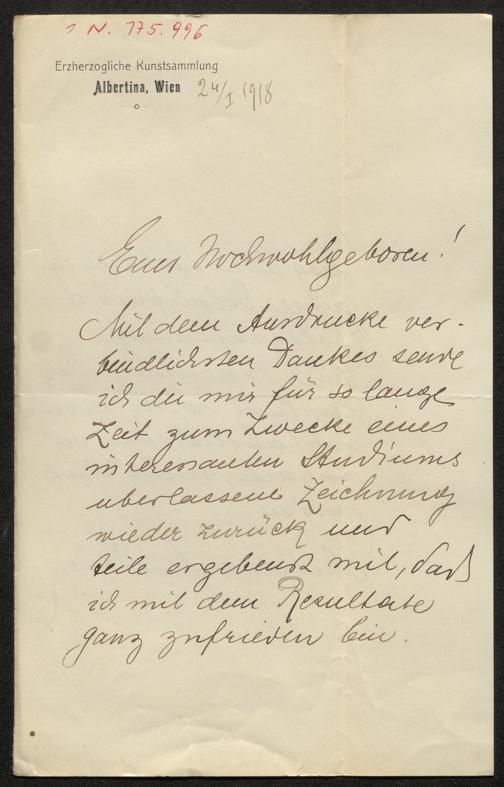 I N. 175.996
Erzherzogliche Kunstsammlung
Albertina, Wien 24/I 1918
Euer Hochwohlgeboren!
Mit dem Ausdrucke ver-
bindlichsten Dankes sende
ich die mir für so lange
Zeit zum Zwecke eines
interessanten Studiums
überlassene Zeichnung
wieder zurück und
teile ergebenst mit, daß
ich mit dem Resultate
ganz zufrieden bin.